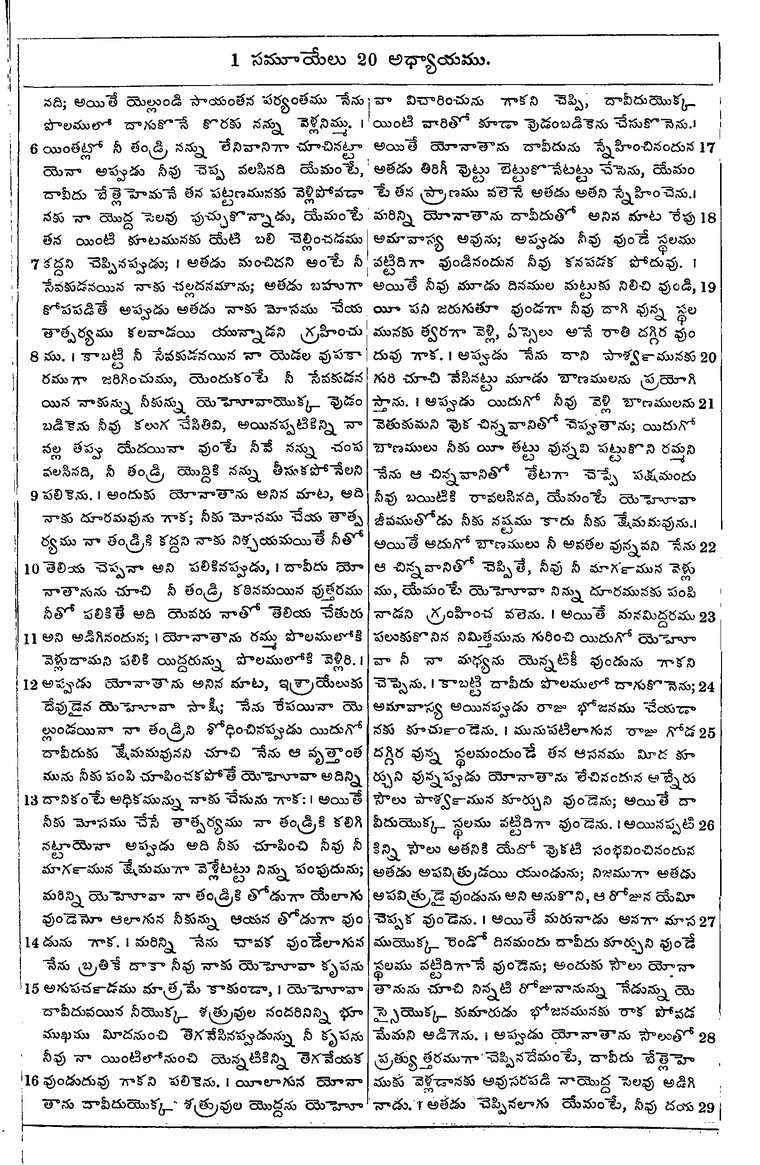 1 సమూయేలు 20 అధ్యాయము.
నది; అయితే యెల్లుండి సాయంతన పర్యంతము నేను
పొలములో దాగుకొనే కొరకు నన్ను వెళ్లనిమ్ము. ।
6 యింతట్లో నీ తండ్రి నన్ను తేనివానిగా చూచినట్టా
యెనా అప్పుడు నీవు చెప్ప వలసినది యేమంటే,
దావీదు బేత్లెహెమనే తన పట్టణమునకు వెళ్లిపోవడా
నకు నా యొద్ద సెలవు పుచ్చుకొన్నాడు, యేమంటే
తన యింటి కూటమునకు యేటి బలి చెల్లించడము
7 కద్దని చెప్పినప్పుడు; । అతడు మంచిదని అంటే నీ
సేవకుడనయిన నాకు చల్లదనమాను; అతడు బహుగా
కోపపడితే అప్పుడు అతడు నాకు మోసము చేయ
తాత్పర్యము కలవాడయి యున్నాడని గ్రహించు
8 ము. । కాబట్టి నీ సేవకుడనయిన నా యెడల వుపకా
రముగా జరిగించుము, యెందుకంటే నీ సేవకుడన
యిన నాకున్ను నీకున్ను యెహోవాయొక్క వుడం
బడికెను నీవు కలుగ చేసితివి, అయినప్పటికిన్ని నా
వల్ల తప్పు యేదయినా వుంటే నీవే నన్ను చంప
వలసినది, నీ తండ్రి యొద్దికి నన్ను తీసుకపోనేలని
9 పలికెను. । అందుకు యోనాతాను అనిన మాట, అది
నాకు దూరమవును గాక; నీకు మోసము చేయ తాత్ప
ర్యము నా తండ్రికి కద్దని నాకు నిశ్చయమయితే నీతో
10 తెలియ చెప్పనా అని పలికినప్పుడు, । దావీదు యో
నాతానును చూచి నీ తండ్రి కఠినమయిన వుత్తరము
నీతో పలికితే అది యెవరు నాతో తెలియ చేతురు
11 అని అడిగినందున; । యోనాతాను రమ్ము పొలములోకి
వెళ్లుదామని పలికి యిద్దరున్ను పొలములోకి వెళ్లిరి. ।
12 అప్పుడు యోనాతాను అనిన మాట, ఇశ్రాయేలుకు
దేవుడైన యెహోవా సాక్షి; నేను రేపయినా యె
ల్లుండయినా నా తండ్రిని శోధించినప్పుడు యిదుగో
దావీదుకు క్షేమమవునని చూచి నేను ఆ వృత్తాంత
మును నీకు పంపి చూపించకపోతే యెహోవా అదిన్ని
13 దానికంటే అధికమున్ను నాకు చేసును గాక: । అయితే
నీకు మోసము చేసే తాత్పర్యము నా తండ్రికి కలిగి
నట్టాయెనా అప్పుడు అది నీకు చూపించి నీవు నీ
మార్గమున క్షేమముగా వెళ్లేటట్టు నిన్ను పంపుదును;
మరిన్ని యెహోవా నా తండ్రికి తోడుగా యేలాగు
వుండెనో ఆలాగున నీకున్ను ఆయన తోడుగా వుం
14 డును గాక. । మరిన్ని నేను చావక వుండేలాగున
నేను బ్రతికే దాకా నీవు నాకు యెహోవా కృపను
15 అగుపర్చడము మాత్రమే కాకుండా, । యెహోవా
దావీదువయిన నీయొక్క శత్రువుల నందరినిన్ని భూ
ముఖము మీదనుంచి తెగవేసినప్పుడున్ను నీ కృపను
నీవు నా యింటిలోనుంచి యెన్నటికిన్ని తెగవేయక
16 వుండుదువు గాకని పలికెను. । యీలాగున యోనా
తాను దావీదుయొక్క శత్రువుల యొద్దను యెహో
వా విచారించును గాకని చెప్పి, దావీదుయొక్క
యింటి వారితో కూడా వుడంబడికెను చేసుకొనెను. ।
అయితే యోనాతాను దావీదును స్నేహించినందున 17
అతడు తిరిగీ వొట్టు బెట్టుకొనేటట్టు చేసెను, యేమం
టే తన ప్రాణము వలెనే అతడు అతని స్నేహించెను. ।
మరిన్ని యోనాతాను దావీదుతో అనిన మాట రేపు 18
అమావాస్య అవును; అప్పుడు నీవు వుండే స్థలము
వట్టిదిగా వుండినందున నీవు కనపడక పోదువు. ।
అయితే నీవు మూడు దినముల మట్టుకు నిలిచి వుండి, 19
యీ పని జరుగుతూ వుండగా నీవు దాగి వున్న స్థల
మునకు త్వరగా వెళ్లి, ఏస్సెలు అనే రాతి దగ్గిర వుం
దువు గాక. । అప్పుడు నేను దాని పార్శ్వమునకు 20
గురి చూచి వేసినట్టు మూడు బాణములను ప్రయోగి
స్తాను. । అప్పుడు యిదుగో నీవు వెళ్లి బాణములను 21
వెతుకుమని వొక చిన్నవానితో చెప్పుతాను; యిదుగో
బాణములు నీకు యీ తట్టు వున్నవి పట్టుకొని రమ్మని
నేను ఆ చిన్నవానితో తేటగా చెప్పే పక్షమందు
నీవు బయిటికి రావలసినది, యేమంటే యెహోవా
జీవముతోడు నీకు నష్టము కాదు నీకు క్షేమమవును. ।
అయితే అదుగో బాణములు నీ అవతల వున్నవని నేను 22
ఆ చిన్నవానితో చెప్పితే, నీవు నీ మార్గమున వెళ్లు
ము, యేమంటే యెహోవా నిన్ను దూరమునకు పంపి
నాడని గ్రహించ వలెను. । అయితే మనమిద్దరము 23
పలుకుకొనిన నిమిత్తమును గురించి యిదుగో యెహో
వా నీ నా మధ్యను యెన్నటికీ వుండును గాకని
చెప్పెను. । కాబట్టి దావీదు పొలములో దాగుకొనెను; 24
అమావాస్య అయినప్పుడు రాజు భోజనము చేయడా
నకు కూర్చుండెను. । మునుపటిలాగున రాజు గోడ 25
దగ్గిర వున్న స్థలమందుండే తన ఆసనము మీద కూ
ర్చుని వున్నప్పుడు యోనాతాను లేచినందున ఆబ్నేరు
సౌలు పార్శ్వమున కూర్చుని వుండెను; అయితే దా
వీదుయొక్క స్థలము వట్టిదిగా వుండెను. । ఆయినప్పటి 26
కిన్ని సౌలు అతనికి యేదో వొకటి సంభవించినందున
అతడు అపవిత్రుడయి యుండును; నిజముగా అతడు
అపవిత్రుడై వుండును అని అనుకొని, ఆ రోజున యేమీ
చెప్పక వుండెను. । అయితే మరునాడు అనగా మాస 27
ముయొక్క రెండో దినమందు దావీదు కూర్చుని వుండే
స్థలము వట్టిదిగానే వుండెను; అందుకు సౌలు యోనా
తానును చూచి నిన్నటి రోజునానున్ను నేడున్ను యె
స్సైయొక్క కుమారుడు భోజనమునకు రాక పోవడ
మేమని అడిగెను. । అప్పుడు యోనాతాను సౌలుతో 28
ప్రత్యుత్తరముగా చెప్పినదేమంటే, దావీదు బేత్లెహె
ముకు వెళ్లడానకు అవుసరపడి నాయొద్ద సెలవు అడిగి
నాడు. । అతడు చెప్పినలాగు యేమంటే, నీవు దయ 29